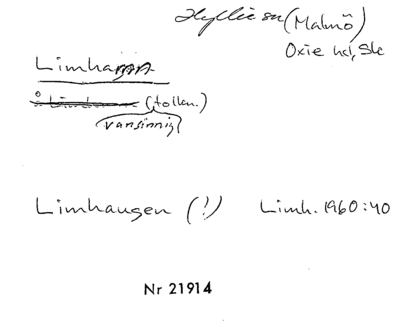 Hyllie sn (Malmö)
Oxie hd, Sk
Limhamn
(tollen.)
vansinnig
Limhausen (!) Limh. 1960:40
Nr 21914